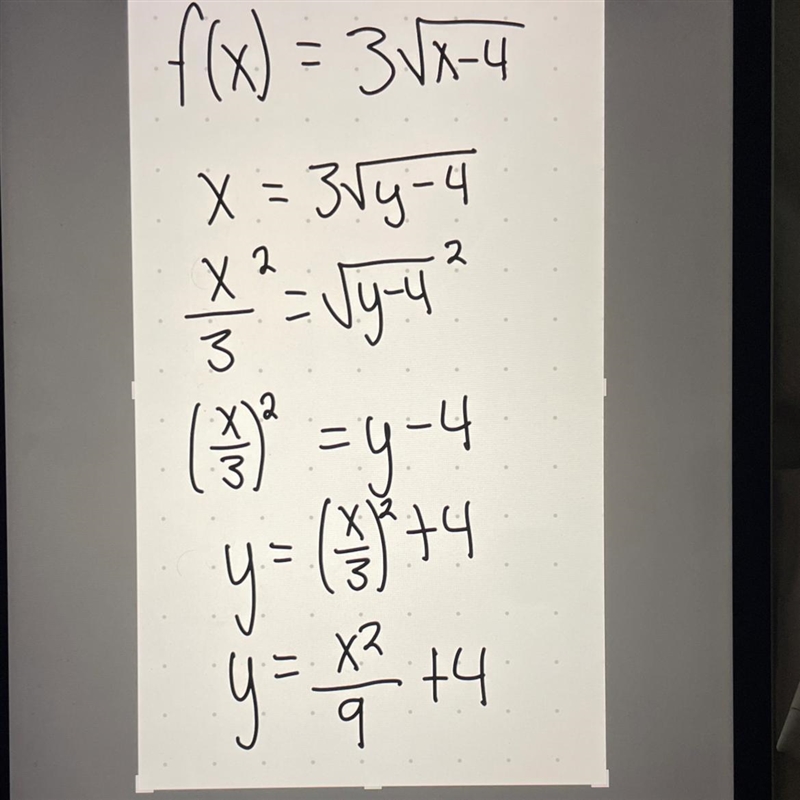 f(x) = 3√(x-4)
x = 3√(y-4)
x/3 ² = √(y-4) ²
(x/3)² = y-4
y = (x/3)² + 4
y = x²/9 + 4